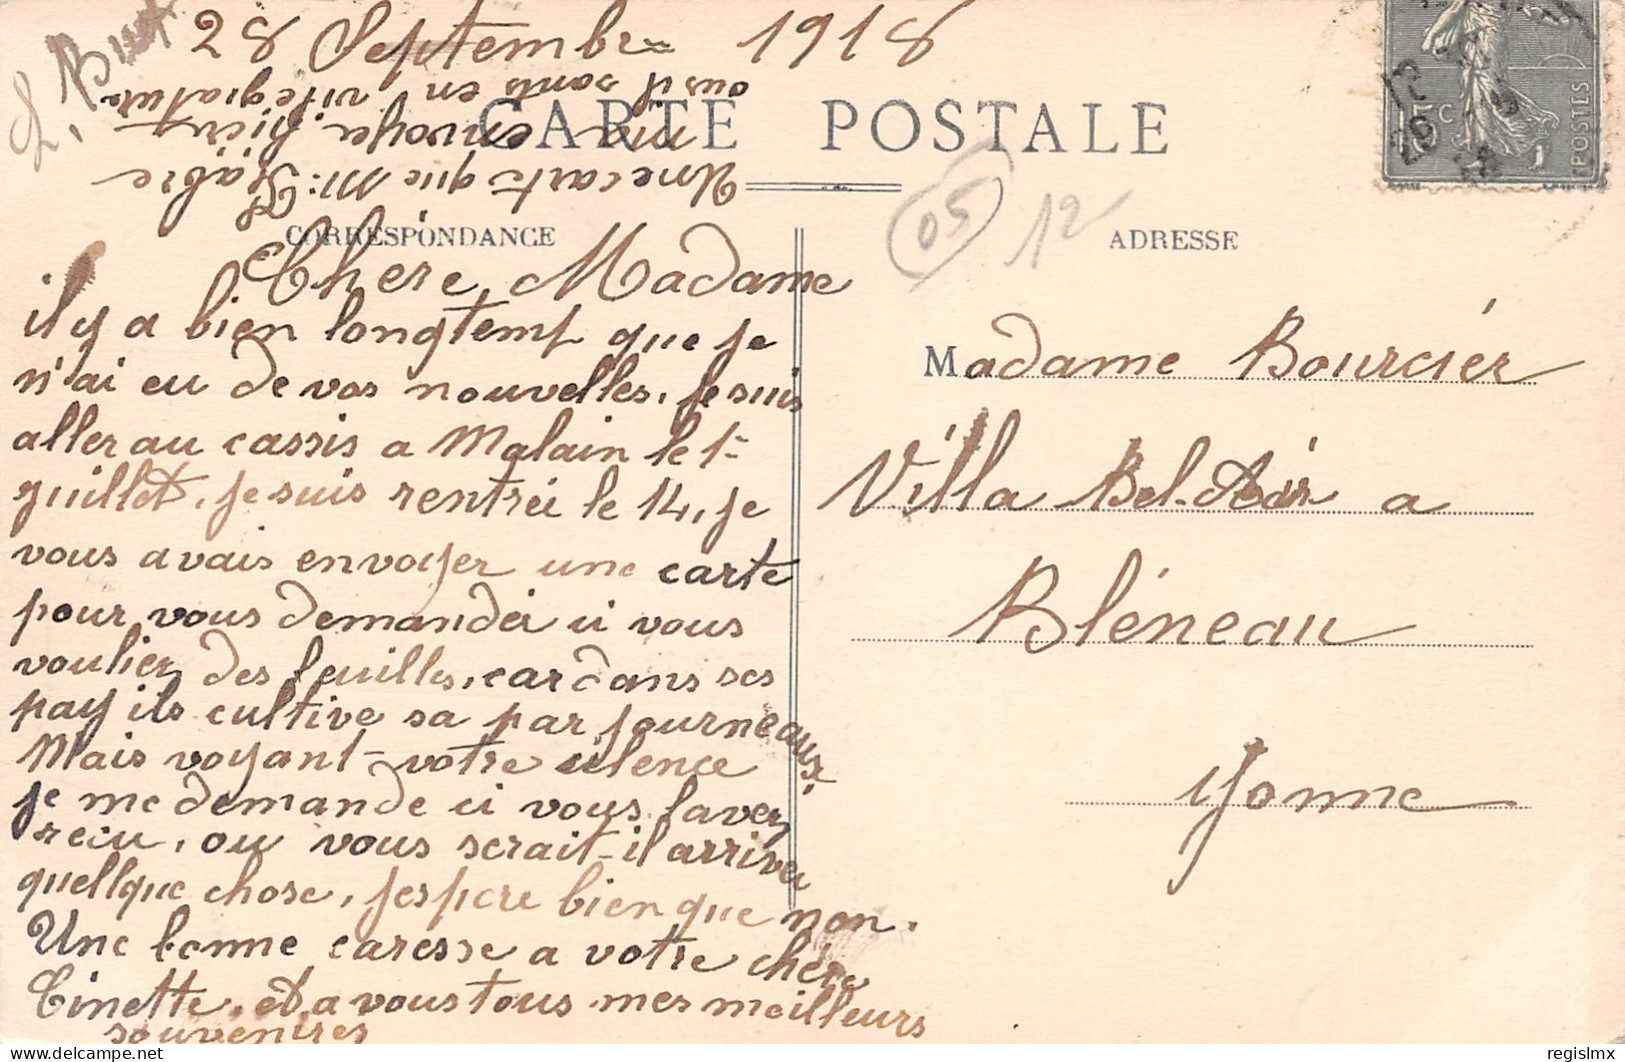 28 Septembre 1918
CARTE POSTALE
Une carte que M.
m'a envoyer hier
ousil sont en vilegiature
L. Buet
15c
POSTES
05
12
CORRESPONDANCE
ADRESSE
Chere Madame
il y a bien longtemp que je
n'ai eu de vos nouvelles, je suis
aller au cassis a Malain le 1er
juillet, je suis rentrée le 14, je
vous avais envoyer une carte
pour vous demander si vous
voulier des feuilles, car dans ses
pay ils cultive sa par journeaux.
Mais voyant votre silence
je me demande si vous l'avez
recu, ou vous serait-il arriver
quellque chose, j'espere bien que non.
Une bonne caresse a votre chère
Cinette, et a vous tous mes meilleurs
souvenires
Madame Bourcier
Villa Bel-Air a
Bléneau
Yonne
regislmx